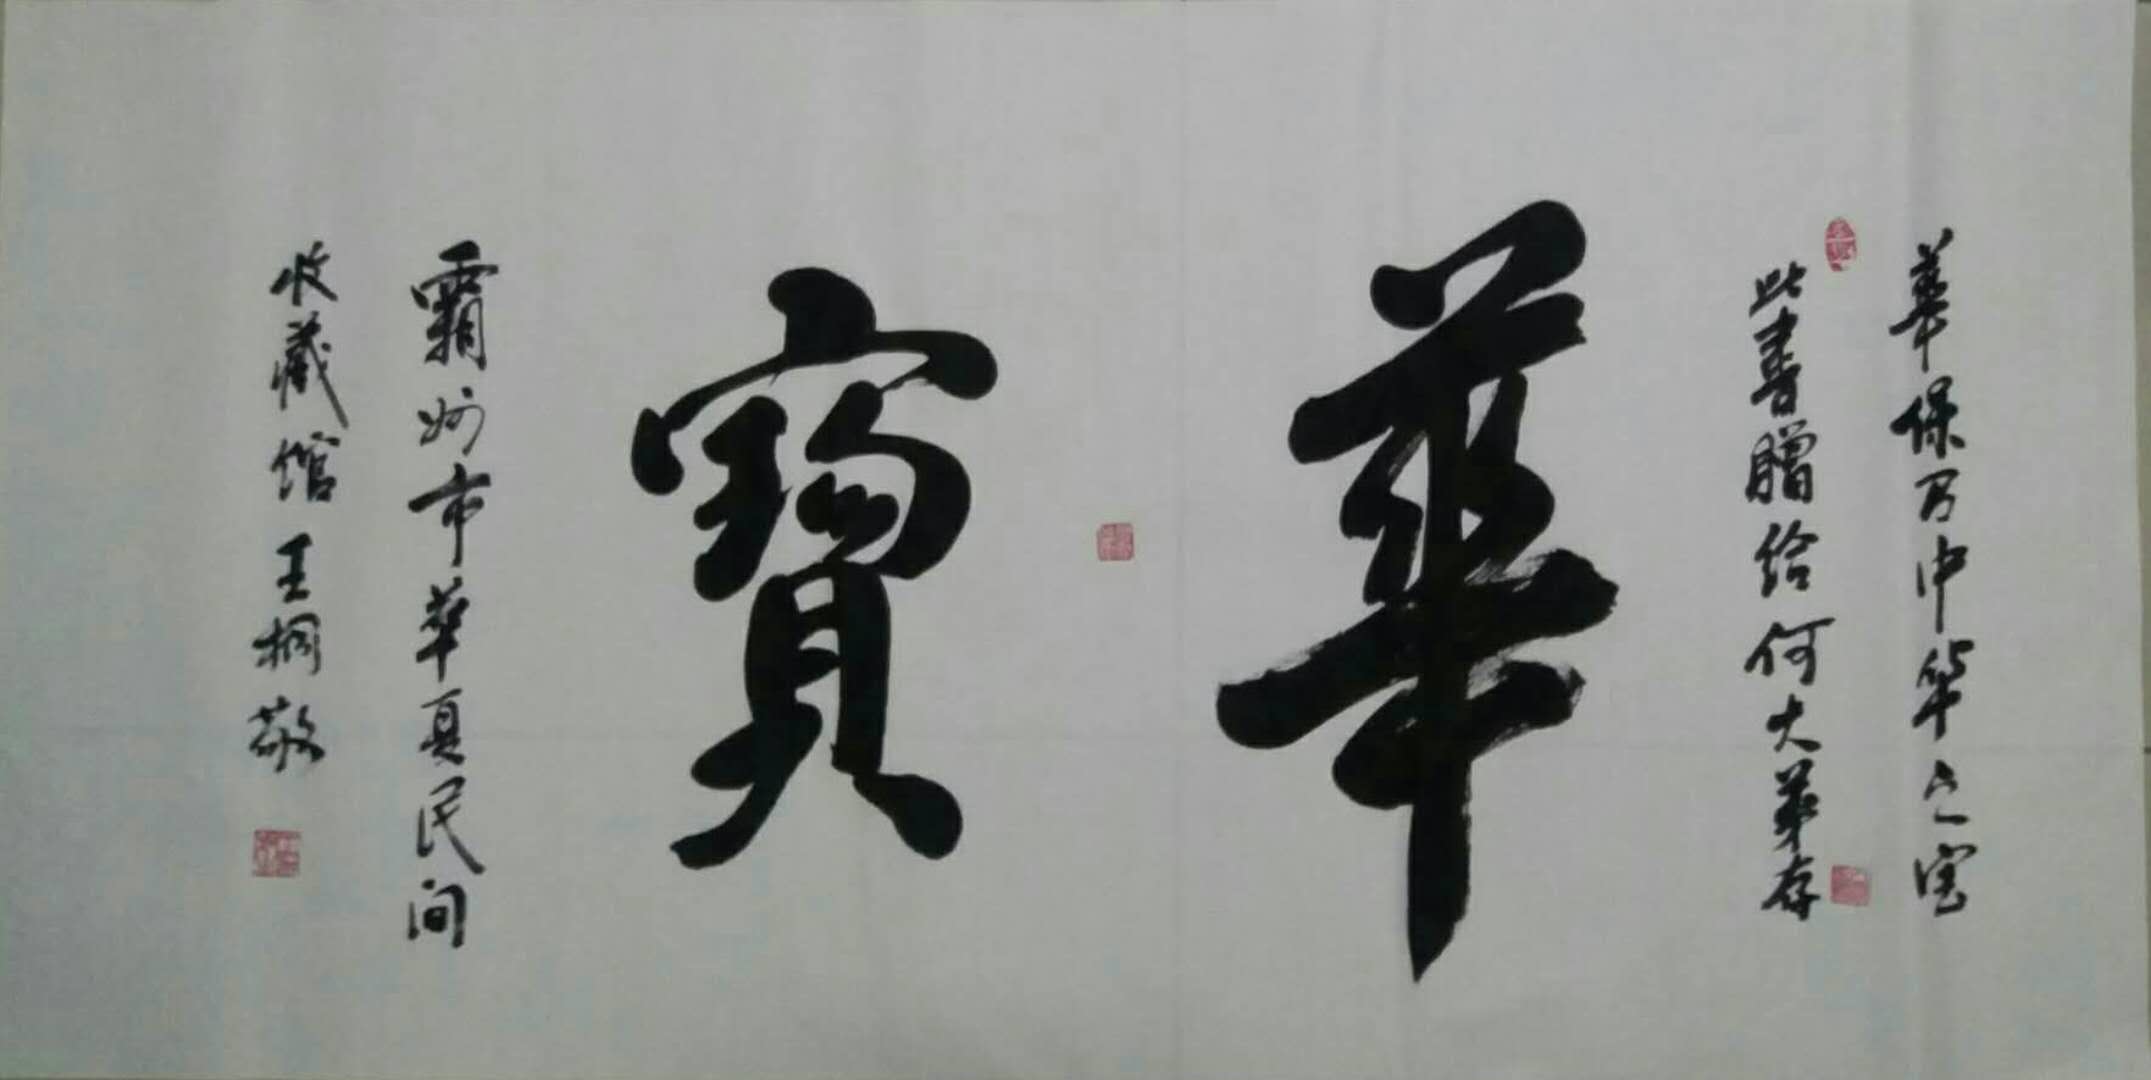 華保乃中华之宝
此書贈给何大華存
華寶
霸州市華夏民间
收藏馆王桐敬